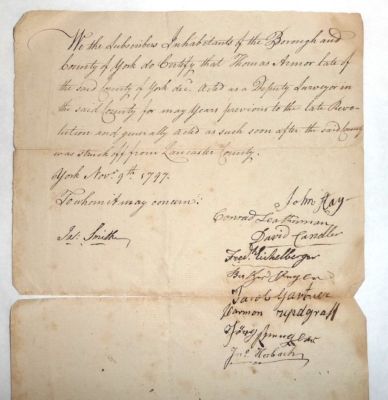 We the Subscribers Inhabitants of the Borough and
County of York do Certify that Thomas Armor late of
the said County of York decd. Acted as a Deputy Surveyor in
the said County for may Years previous to the late Revo-
lution and generally acted as such soon after the said County
was struck off from Lancaster County.
York Novr. 9th. 1797.
To whom it may concern:
John Hay
Conrad Leatherman
David Candler
Jas. Smith
Fredk. Eichelberger
Jacob Gartner
Harmon Updgraff
Jno.